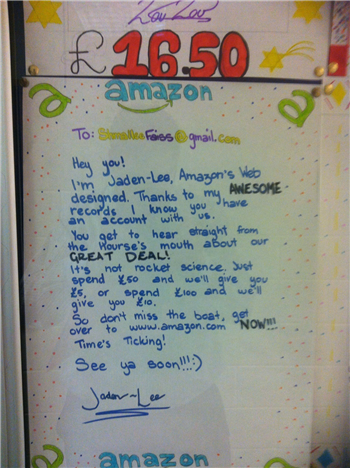 £16.50
amazon
To: @gmail.com
Hey you!
I'm Jaden-Lee, Amazon's Web
designed. Thanks to my AWESOME
records I know you have
an account with us.
You get to hear straight from
the Hourse's mouth about our
GREAT DEAL!
It's not rocket science. Just
spend £50 and we'll give you
£5, or spend £100 and we'll
give you £10.
So don't miss the boat, get
over to www.amazon.com NOW!!!
Time's Ticking!
See ya soon!!!:)
Jaden-Lee
amazon